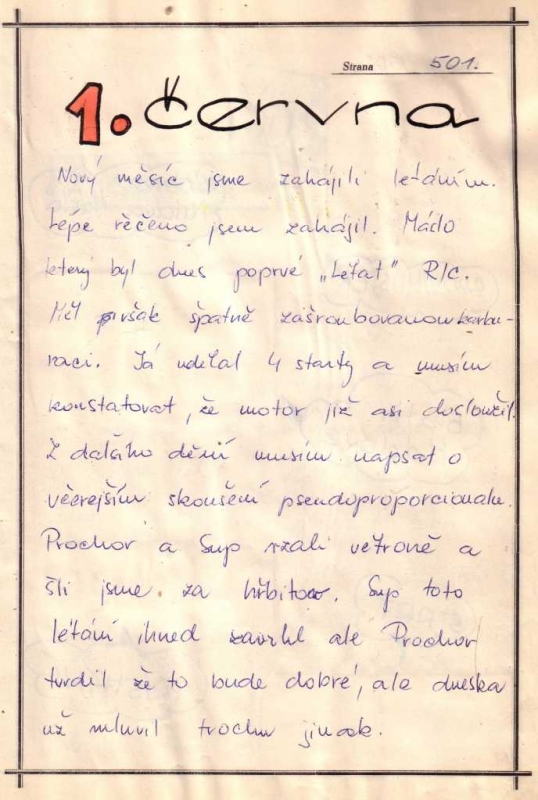 Strana 501.
1. června
Nový měsíc jsme zahájili létáním.
Lépe řěčeno jsem zahájil. Máclo
který byl dnes poprvé „Létat" R/c.
Měl však špatně zašroubovanou karbu-
raci. Já udělal 4 starty a musím
konstatovat, že motor již asi dosloužil.
Z dalšího dění musím napsat o
včerejším skoušení pseudoproporcionalu.
Prochor a Sup vzali větroně a
šli jsme za hřbitov. Sup toto
létání ihned zavrhl ale Prochor
tvrdil že to bude dobré, ale dneska
už mluvil trochu jinak.